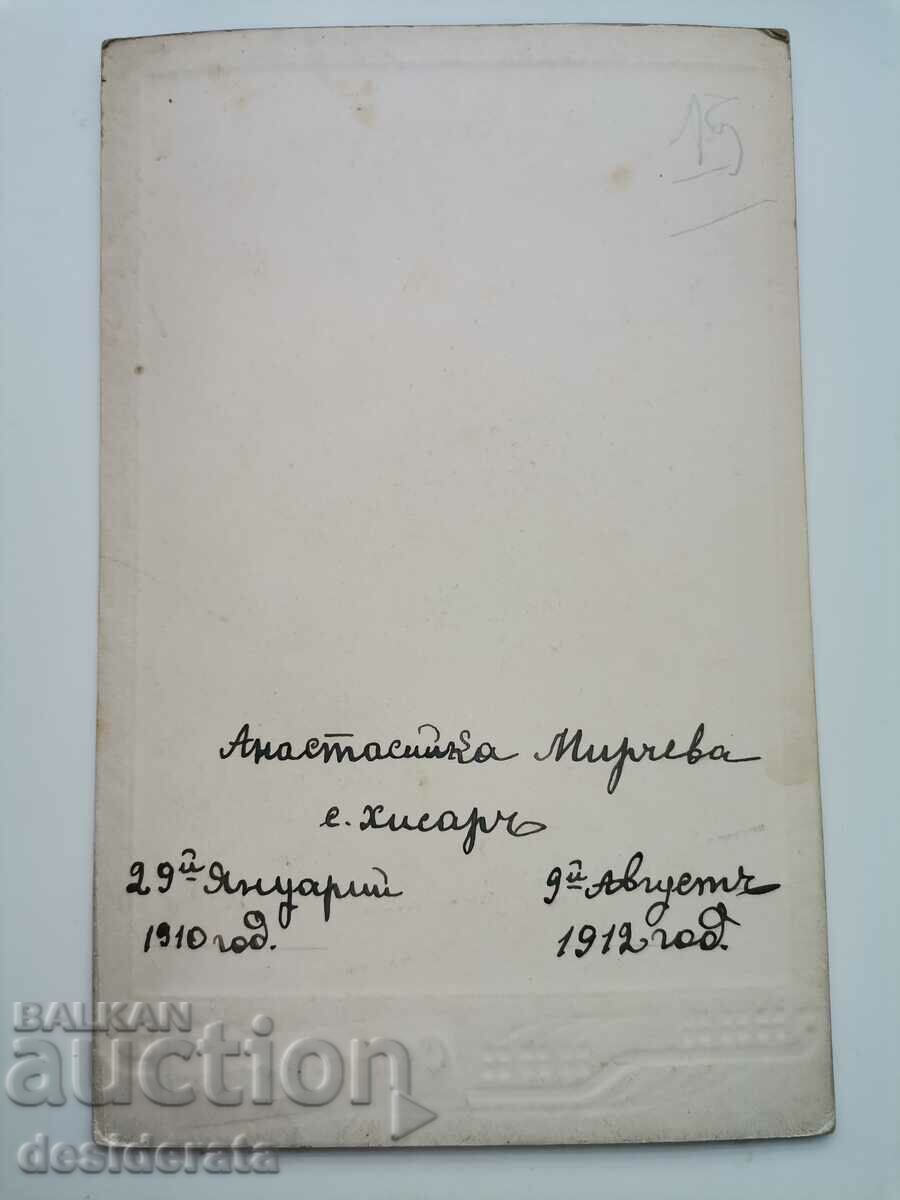 15
Анастасийка Мирчева
с. Хисаръ
29й Януарий
1910 год.
9й Августъ
1912 год.
BALKAN
auction
desiderata